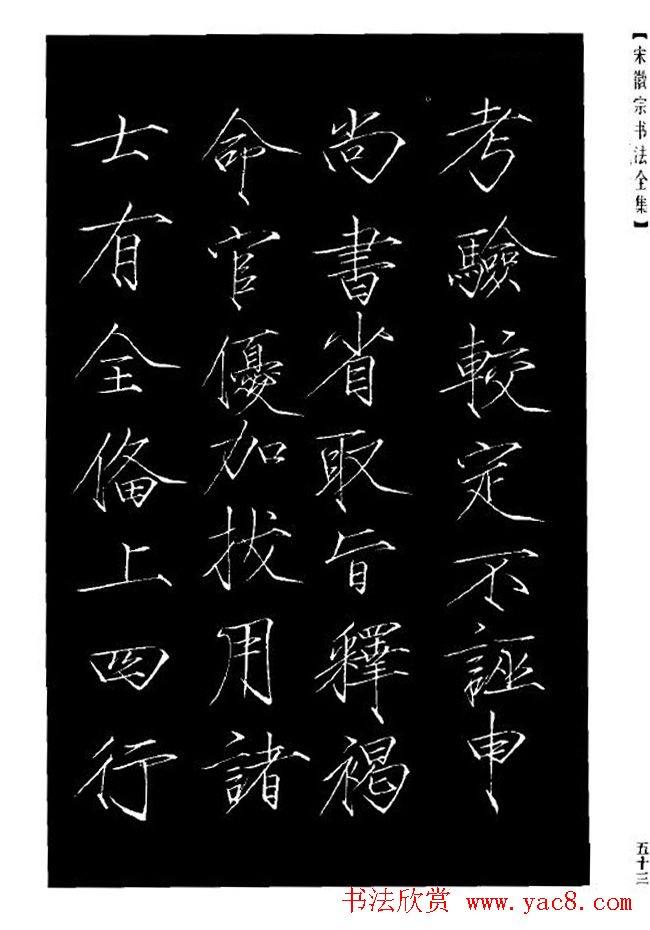 【宋徽宗书法全集】
考驗較定不誣申
尚書省取旨釋褐
命官優加拔用諸
士有全俻上四行
五十三
书法欣赏 www.yac8.com